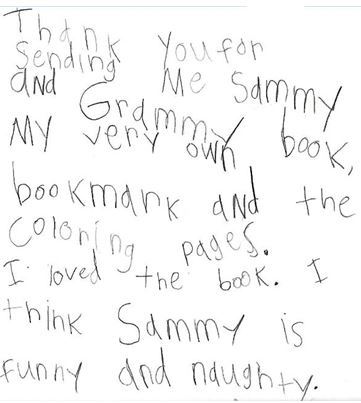 Thank you for
sending Me Sammy
and Grammy
My very own book,
bookmark and the
coloring pages.
I loved the book. I
think Sammy is
funny and naughty.